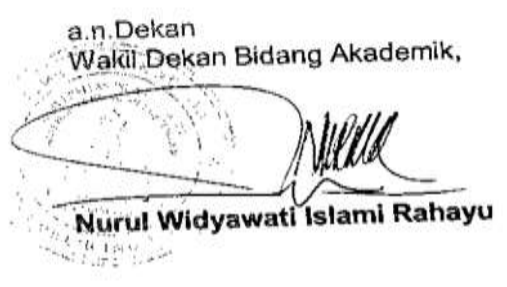 a.n.Dekan
Wakil Dekan Bidang Akademik,
Nurul Widyawati Islami Rahayu